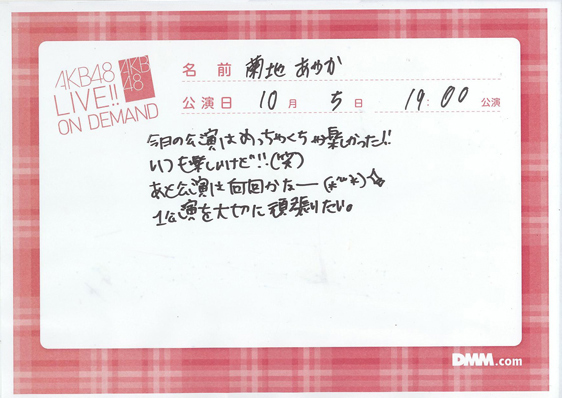 AKB48
LIVE!!
ON DEMAND
AKB
48
名前 菊地あやか
公演日 10月 5日 19:00 公演
今日の公演はめっちゃくちゃ楽しかった!!
いつも楽しいけど!!(笑)
あと公演は何回かなー(*^~^*)☆
1公演を大切に頑張りたい。
DMM.com